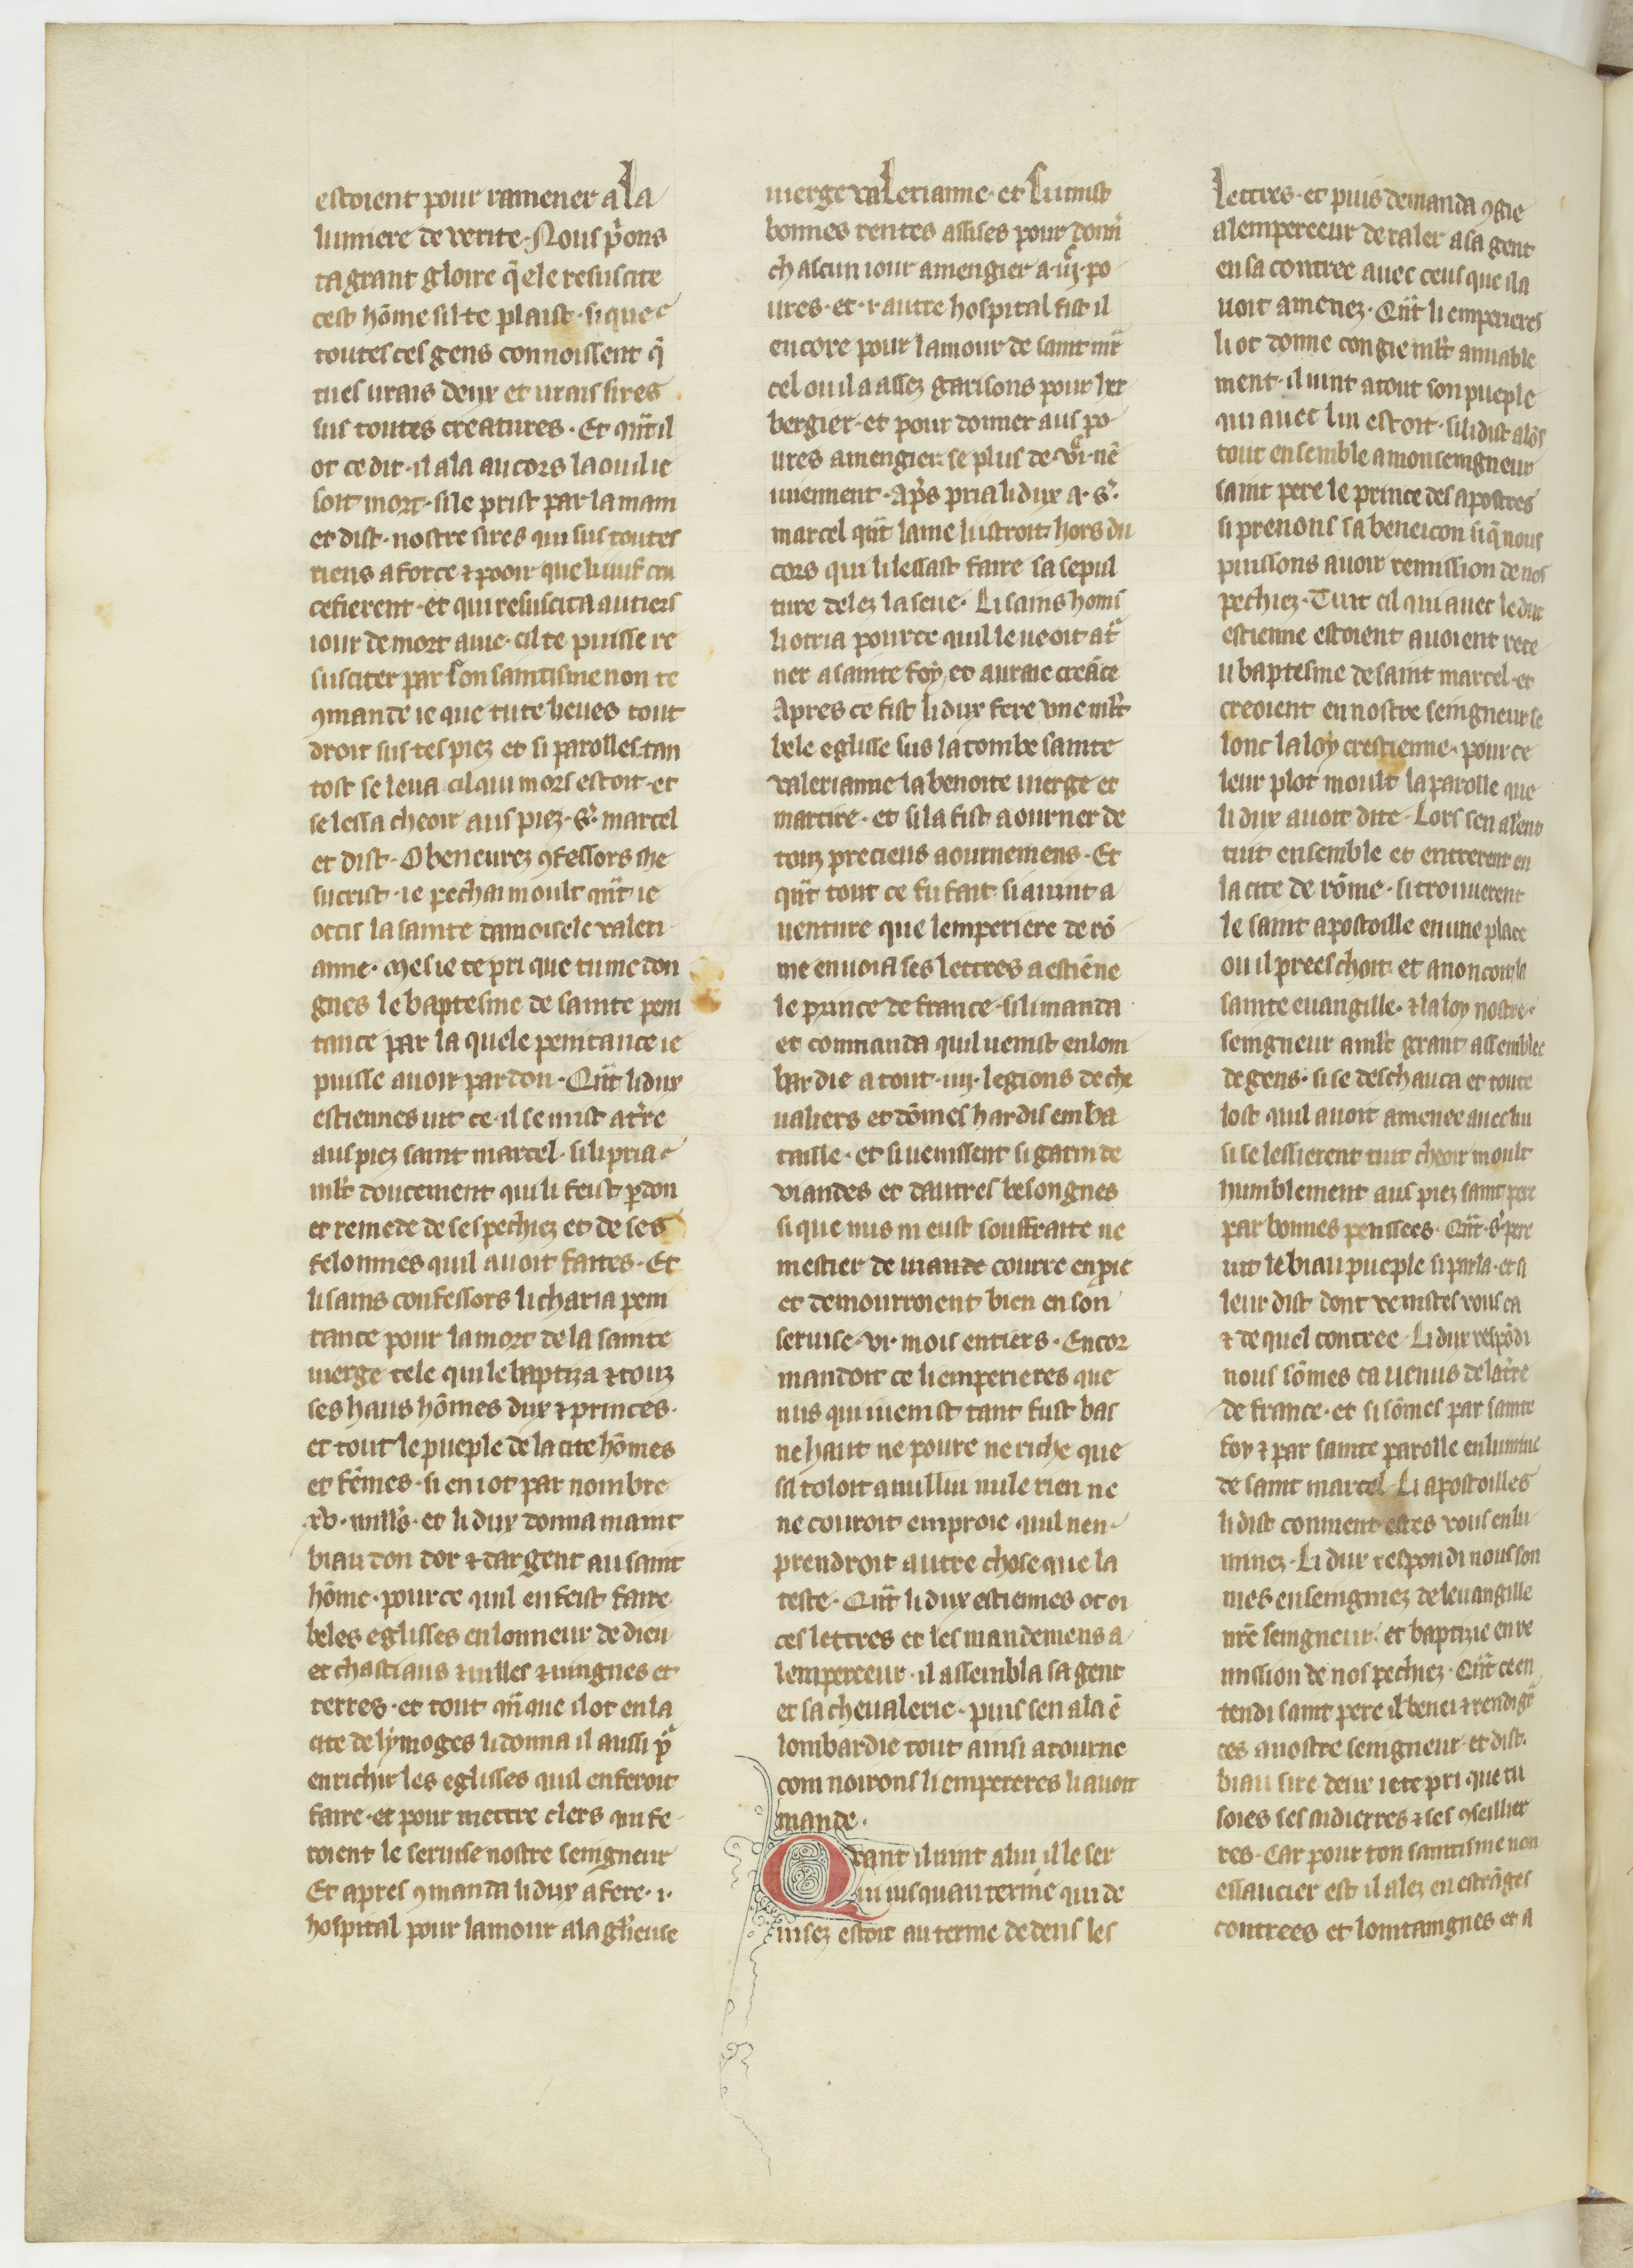 estoient pour ramener a la
lumiere de verite. Nous p̾ons
ta grant gloire q̃ ele resuscite
cest hõme sil te plaist. si que
toutes ces gens connoissent q̃
tu es urais deux et urais sires
sus toutes creatures. Et qũt il
ot ce dit. il ala au cors la ou il ie
soit mort. si le prist par la main
et dist. nostre sires qui sus toutes
riens a force ⁊ pooir que li iuif cru
cefierent. et qui resuscita au tiers
iour de mort a uie. cil te puisse re
susciter par son saintisme non te
ꝯmande ie que tu te lieues tout
droit sus tes piez et si parolles. tan
tost se leua cil qui mors estoit. et
se lessa cheoir aus piez. s̾. marcel
et dist. O beneurez ꝯfessors ihe
sucrist. ie pechai moult qũt ie
occis la sainte damoisele valeri
anne. Mes ie te pri que tu me don
gnes le baptesme de sainte peni
tance par la quele penitance ie
puisse auoir pardon. Qũt li dux
estiennes uit ce. il se mist a t̾re
aus piez saint marcel. si li pria
ml̃t doucement qui li feist p̱don
et remede de ses pechiez et de ses
felonnies quil auoit faites. Et
li sains confessors li charia peni
tance pour la mort de la sainte
uierge tele qui le baptiza ⁊ touz
ses haus hõmes dux ⁊ princes.
et tout le pueple de la cite hõmes
et fẽmes. si en i ot par nombre
.xv. mill̾s. et li dux donna maint
biau don dor ⁊ dargent au saint
hõme. pour ce quil en feist faire
beles eglisses en lonneur de dieu
et chastiaus ⁊ uilles ⁊ uingnes et
terres. et tout qñque il ot en la
cite de lymoges li donna il aussi pͬ
enrichir les eglisses quil en feroit
faire. et pour mettre clers qui fe
roient le seruise nostre seingneur
Et apres ꝯmanda li dux a fere .i.
hospital pour lamour a la gl̾ieuse
uierge valerianne. et si i mist
bonnes rentes assises pour donn̾
chascun iour a mengier a .iijͨ. po
ures. et .i. autre hospital fist il
encore pour lamour de saint mr̃
cel ou il a assez garisons pour her
bergier. et pour donner aus po
ures a mengier. se plus de .viͨ. nẽ
uiennent. Ap̾s pria li dux a. s̾.
marcel qũt lame li istroit hors du
cors qui li lessast faire sa sepul
ture delez la seue. Li sains hons
li otria pour ce quil le ueoit atͬ
ner a sainte foy. et a uraie creãce
Apres ce fist li dux fere vne ml̃t
bele eglisse sus la tombe sainte
valerianne la benoite uierge et
martire. et si la fist aourner de
touz precieus aournemens. Et
qũt tout ce fu fait si auint a
uenture que lemperiere de rõ
me enuoia ses lettres a estiẽne
le prince de france. si li manda
et commanda quil uenist en lom
bardie a tout .iiij. legions de che
ualiers et dõmes hardis en ba
taille. et si uenissent si garni de
viandes et dautres besongnes
si que nus ni eust souffraite ne
mestier de uiande courre en pie
et demourroient bien en son
seruise .vi. mois entiers. Encor
mandoit ce li emperieres que
nus qui uenist tant fust bas
ne haut ne poure ne riche que
sa toloit a nullui nule rien ne
ne couroit em proie quil nen
prendroit autre chose que la
teste. Qũt li dux estiennes ot oi
ces lettres et les mandemens a
lempereeur. il assembla sa gent
et sa cheualerie. puis sen ala ẽ
lombardie tout ainsi atourne
com noirons li empereres li auoit
mande.
Quant il uint a lui il le ser
ui iusquau terme qui de
uisez estoit au terme de dens les
lettres. et puis demanda ꝯgie
a lempereeur de raler a sa gent
en sa contree auec ceus que il a
uoit amenez. Qũt li emperieres
li ot donne congie ml̃t amiable
ment. il uint a tout son pueple
qui auec lui estoit. si li dist alõs
tout ensemble a mon seingneur
saint pere le prince des apostres
si prenons sa beneicon si q̃ nous
puissons auoir remission de nos
pechiez. Tuit cil qui auec le duc
estienne estoient auoient rece
u baptesme de saint marcel. et
creoient en nostre seingneur se
lonc la loy crestienne. pour ce
leur plot moult la parolle que
li dux auoit dite. Lors sen alerent
tuit ensemble et entrerent en
la cite de rõme. si trouuerent
le saint apostoille en une place
ou il preeschoit. et anoncoit la
sainte euangille. ⁊ la loy nostre
seingneur a ml̃t grant assemblee
de gens. si se deschauca et toute
lost quil auoit amenee auec lui
si se lessierent tuit cheoir moult
humblement aus piez saint pere
par bonnes pensees. Qũt .s̾. pere
uit le biau pueple si parla. et si
leur dist dont venistes vous ca
⁊ de quel contree. Li dux respõdi
nous sõmes ca uenus de la t̾re
de france. et si sõmes par sainte
foy ⁊ par sainte parolle enlumine
de saint marcel. Li apostoilles
li dist conment estes vous enlu
minez. Li dux respondi nous son
mes enseingniez de leuangille
nr̃e seingneur. et baptizie en re
mission de nos pechiez. Qũt ce en
tendi saint pere il benei ⁊ rendi gͬ
ces a nostre seingneur et dist.
biau sire deux ie te pri que tu
soies ses aidierres ⁊ ses ꝯseillier
res. Car pour ton saintisme non
essaucier est il alez en estrãges
contrees et lointaingnes et a